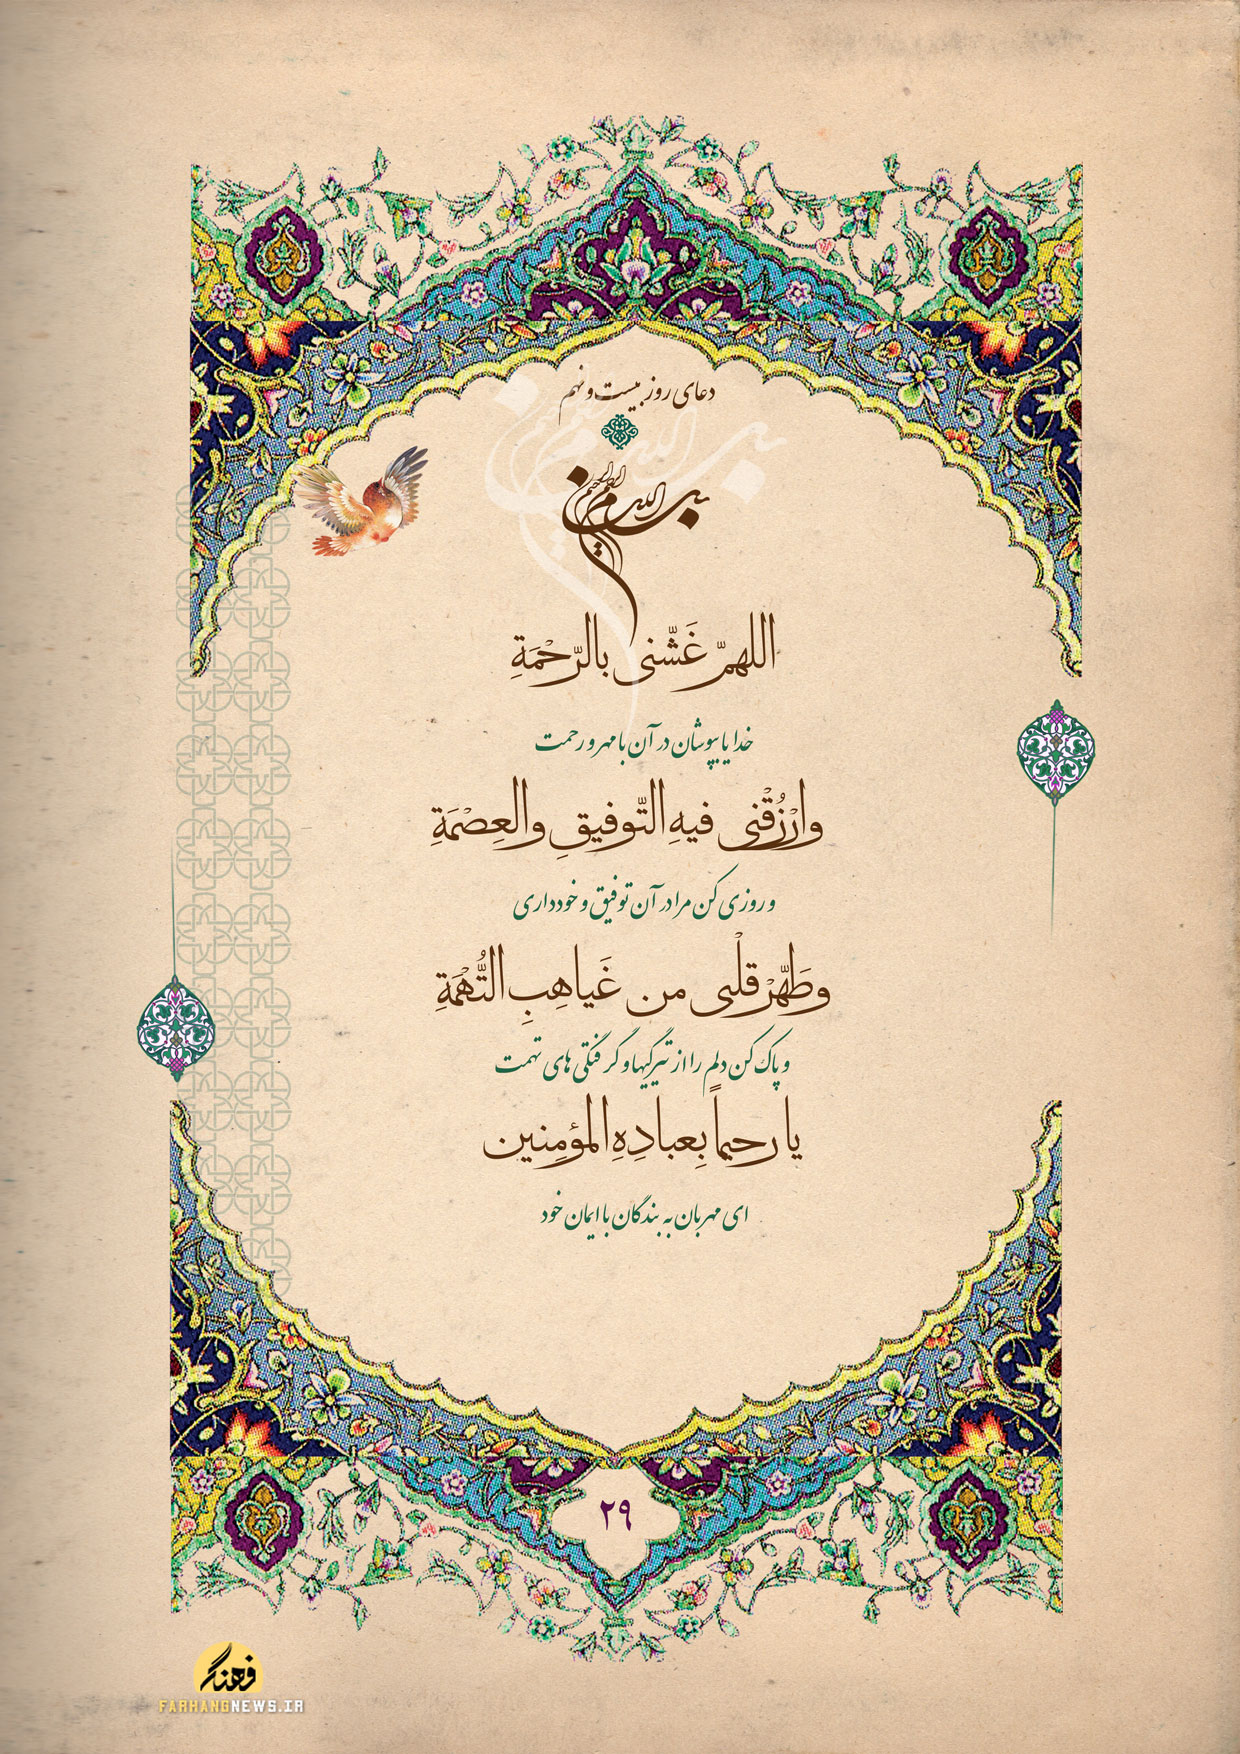 دعای روز بیست و نهم
بسم الله الرحمن الرحیم
اللهمّ غَشّنی بالرّحْمَةِ
خدایا بپوشان در آن با مهر و رحمت
وارْزُقْنی فیهِ التّوفیقِ والعِصْمَةِ
و روزی کن مرا در آن توفیق و خودداری
وطَهّرْ قلْبی من غَیاهِبِ التُّهْمَةِ
و پاک کن دلم را از تیرگیها و گرفتگی های تهمت
یا رحیماً بِعبادِهِ المؤمِنین
ای مهربان به بندگان با ایمان خود
۲۹
فرهنگ
FARHANGNEWS.IR